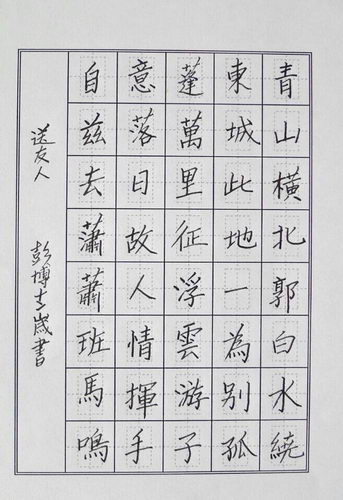 青山橫北郭白水繞
東城此地一為別孤
蓬萬里征浮雲游子
意落日故人情揮手
自兹去瀟蕭班馬鳴
送友人 彭博歲書